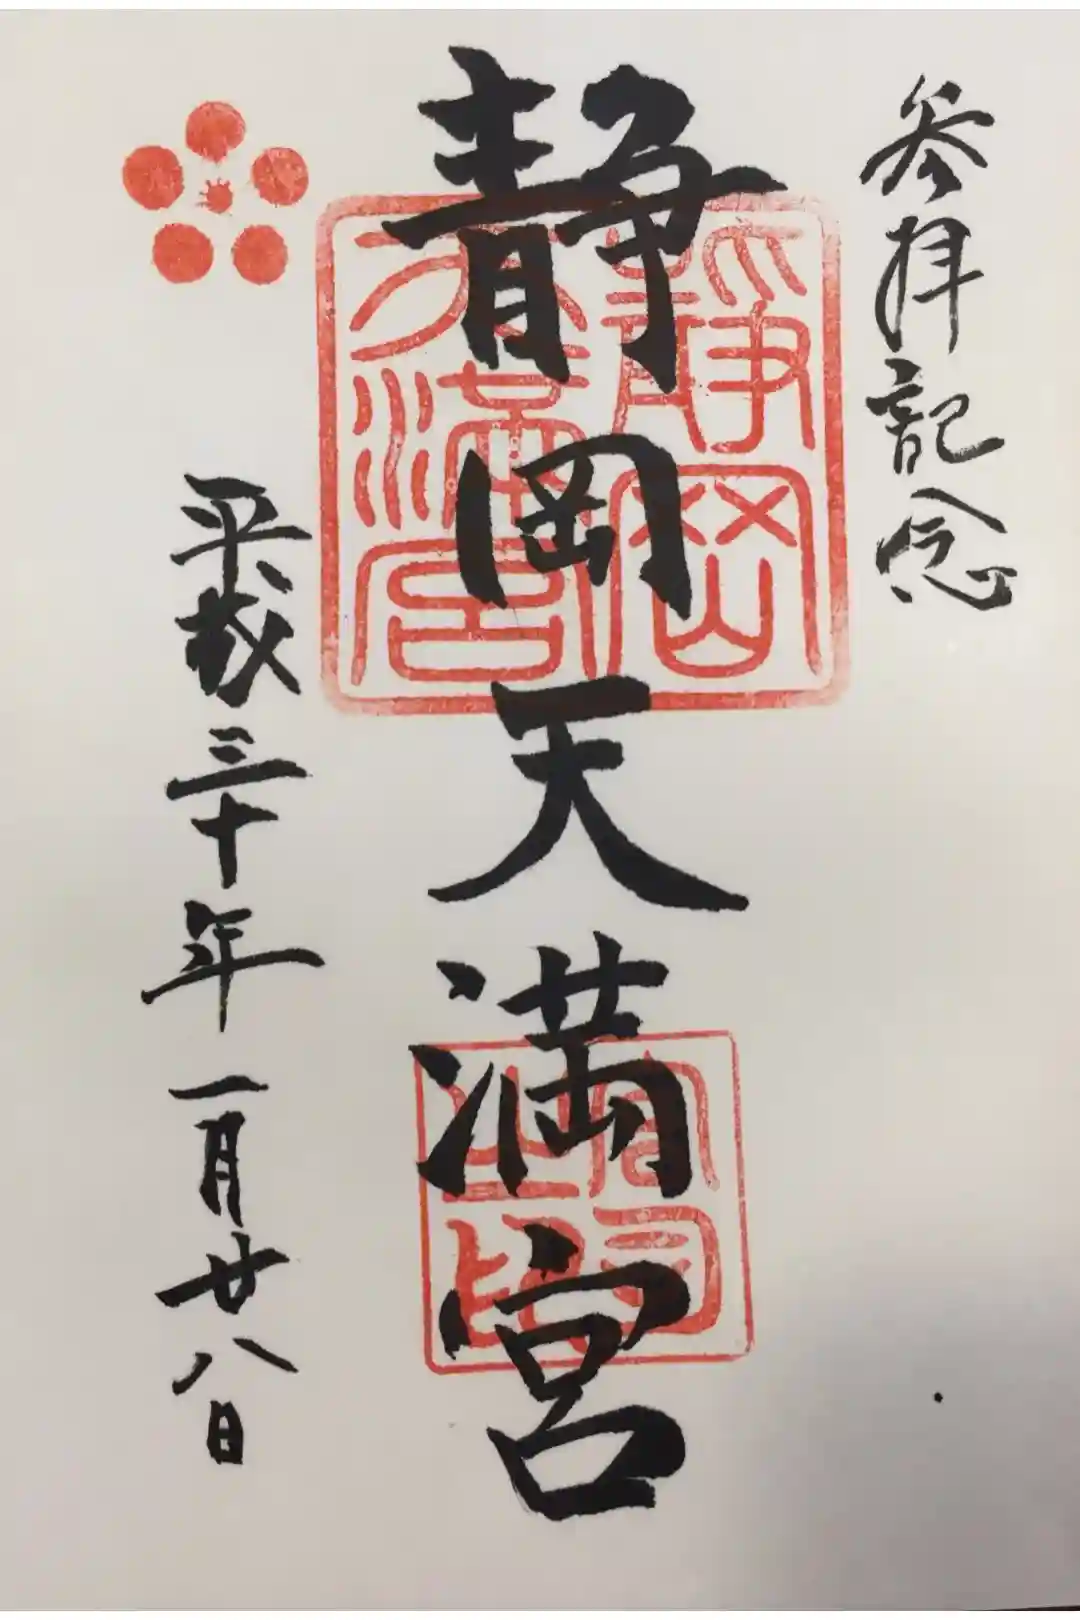 参拝記念
静岡天満宮
静岡
天満宮
宮司
之印
平成三十年一月廿八日